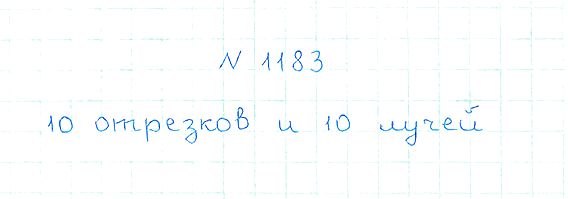 N 1183
10 отрезков и 10 лучей